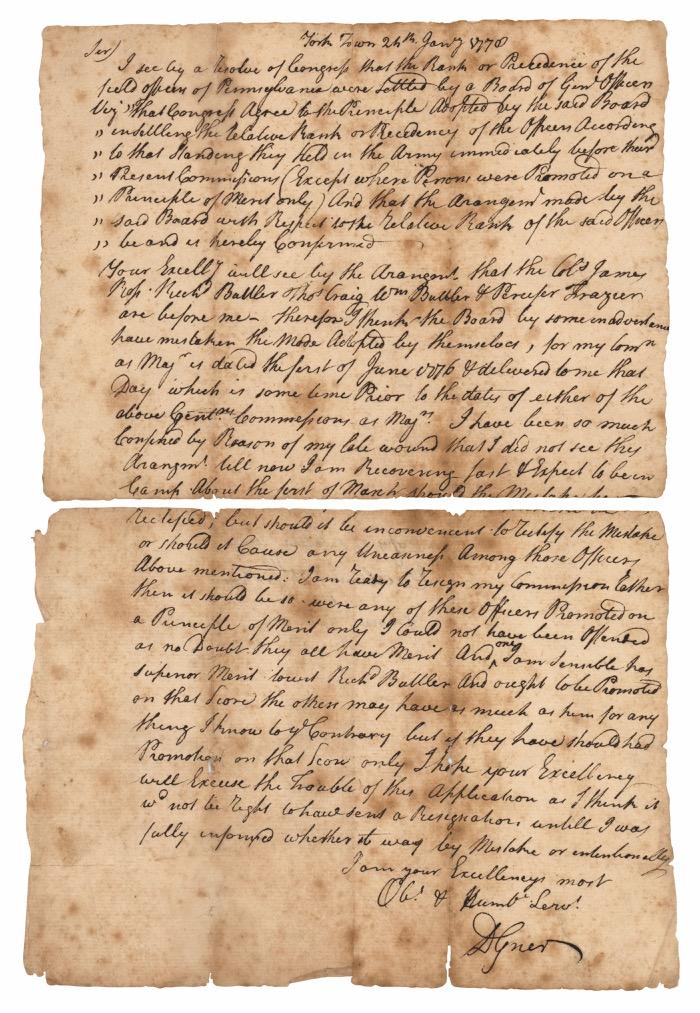 York Town 24th. Jany 1778
Sir)
I see by a Resolve of Congress that the Rank or Precedence of the
field officers of Pennsylvania were settled by a Board of Genl Officers
Viz "That Congress Agree to the Principle Adopted by the said Board
" in settling the Relative Rank or Recedency of the Officers According
" to that Standing they held in the Army immediately before their
" Present Commissions (Except where Persons were Promoted on a
" Principle of Merit only) And that the Arangemt. made by the
" said Board with Respect to the Relative Rank of the said Officers
" be and is hereby Confirmed
Your Excelly will see by the Arangmt. that the Cols James
Ross. Richd Buttler Thos Craig Wm Buttler & Persifer Frazier
are before me - therefor I think the Board by some inadvertance
have mistaken the Mode Adopted by themselves, for my Comn
as Majr is dated the first of June 1776 & delivered to me that
Day which is some time Prior to the dates of either of the
above Gentns. Commissions as Majrs. I have been so much
Confined by Reason of my late wound that I did not see this
Arangmt. till now I am Recovering fast & Expect to be in
Camp About the first of March should the Mistake be
Rectified; but should it be inconvenient to Rectify the Mistake
or should it Cause any Uneasiness Among those Officers
Above mentioned: I am Ready to Resign my Commission Rather
then it should be so - were any of these Officers Promoted on
a Principle of Merit only I Could not have been Offended
as no Doubt they all have Merit And one I am Sensible has
superior Merit towit Richd Buttler And ought to be Promoted
on that Score the others may have as much as him for any
thing I know to ye Contrary but if they have should had
Promotion on that Score only I hope your Excellency
will Excuse the Trouble of this Application as I think it
wd not be Right to have sent a Resignation untill I was
fully informed whether it was by Mistake or intentionally
I am your Excellencys most
Obt. & Humbe Servt.
DGrier